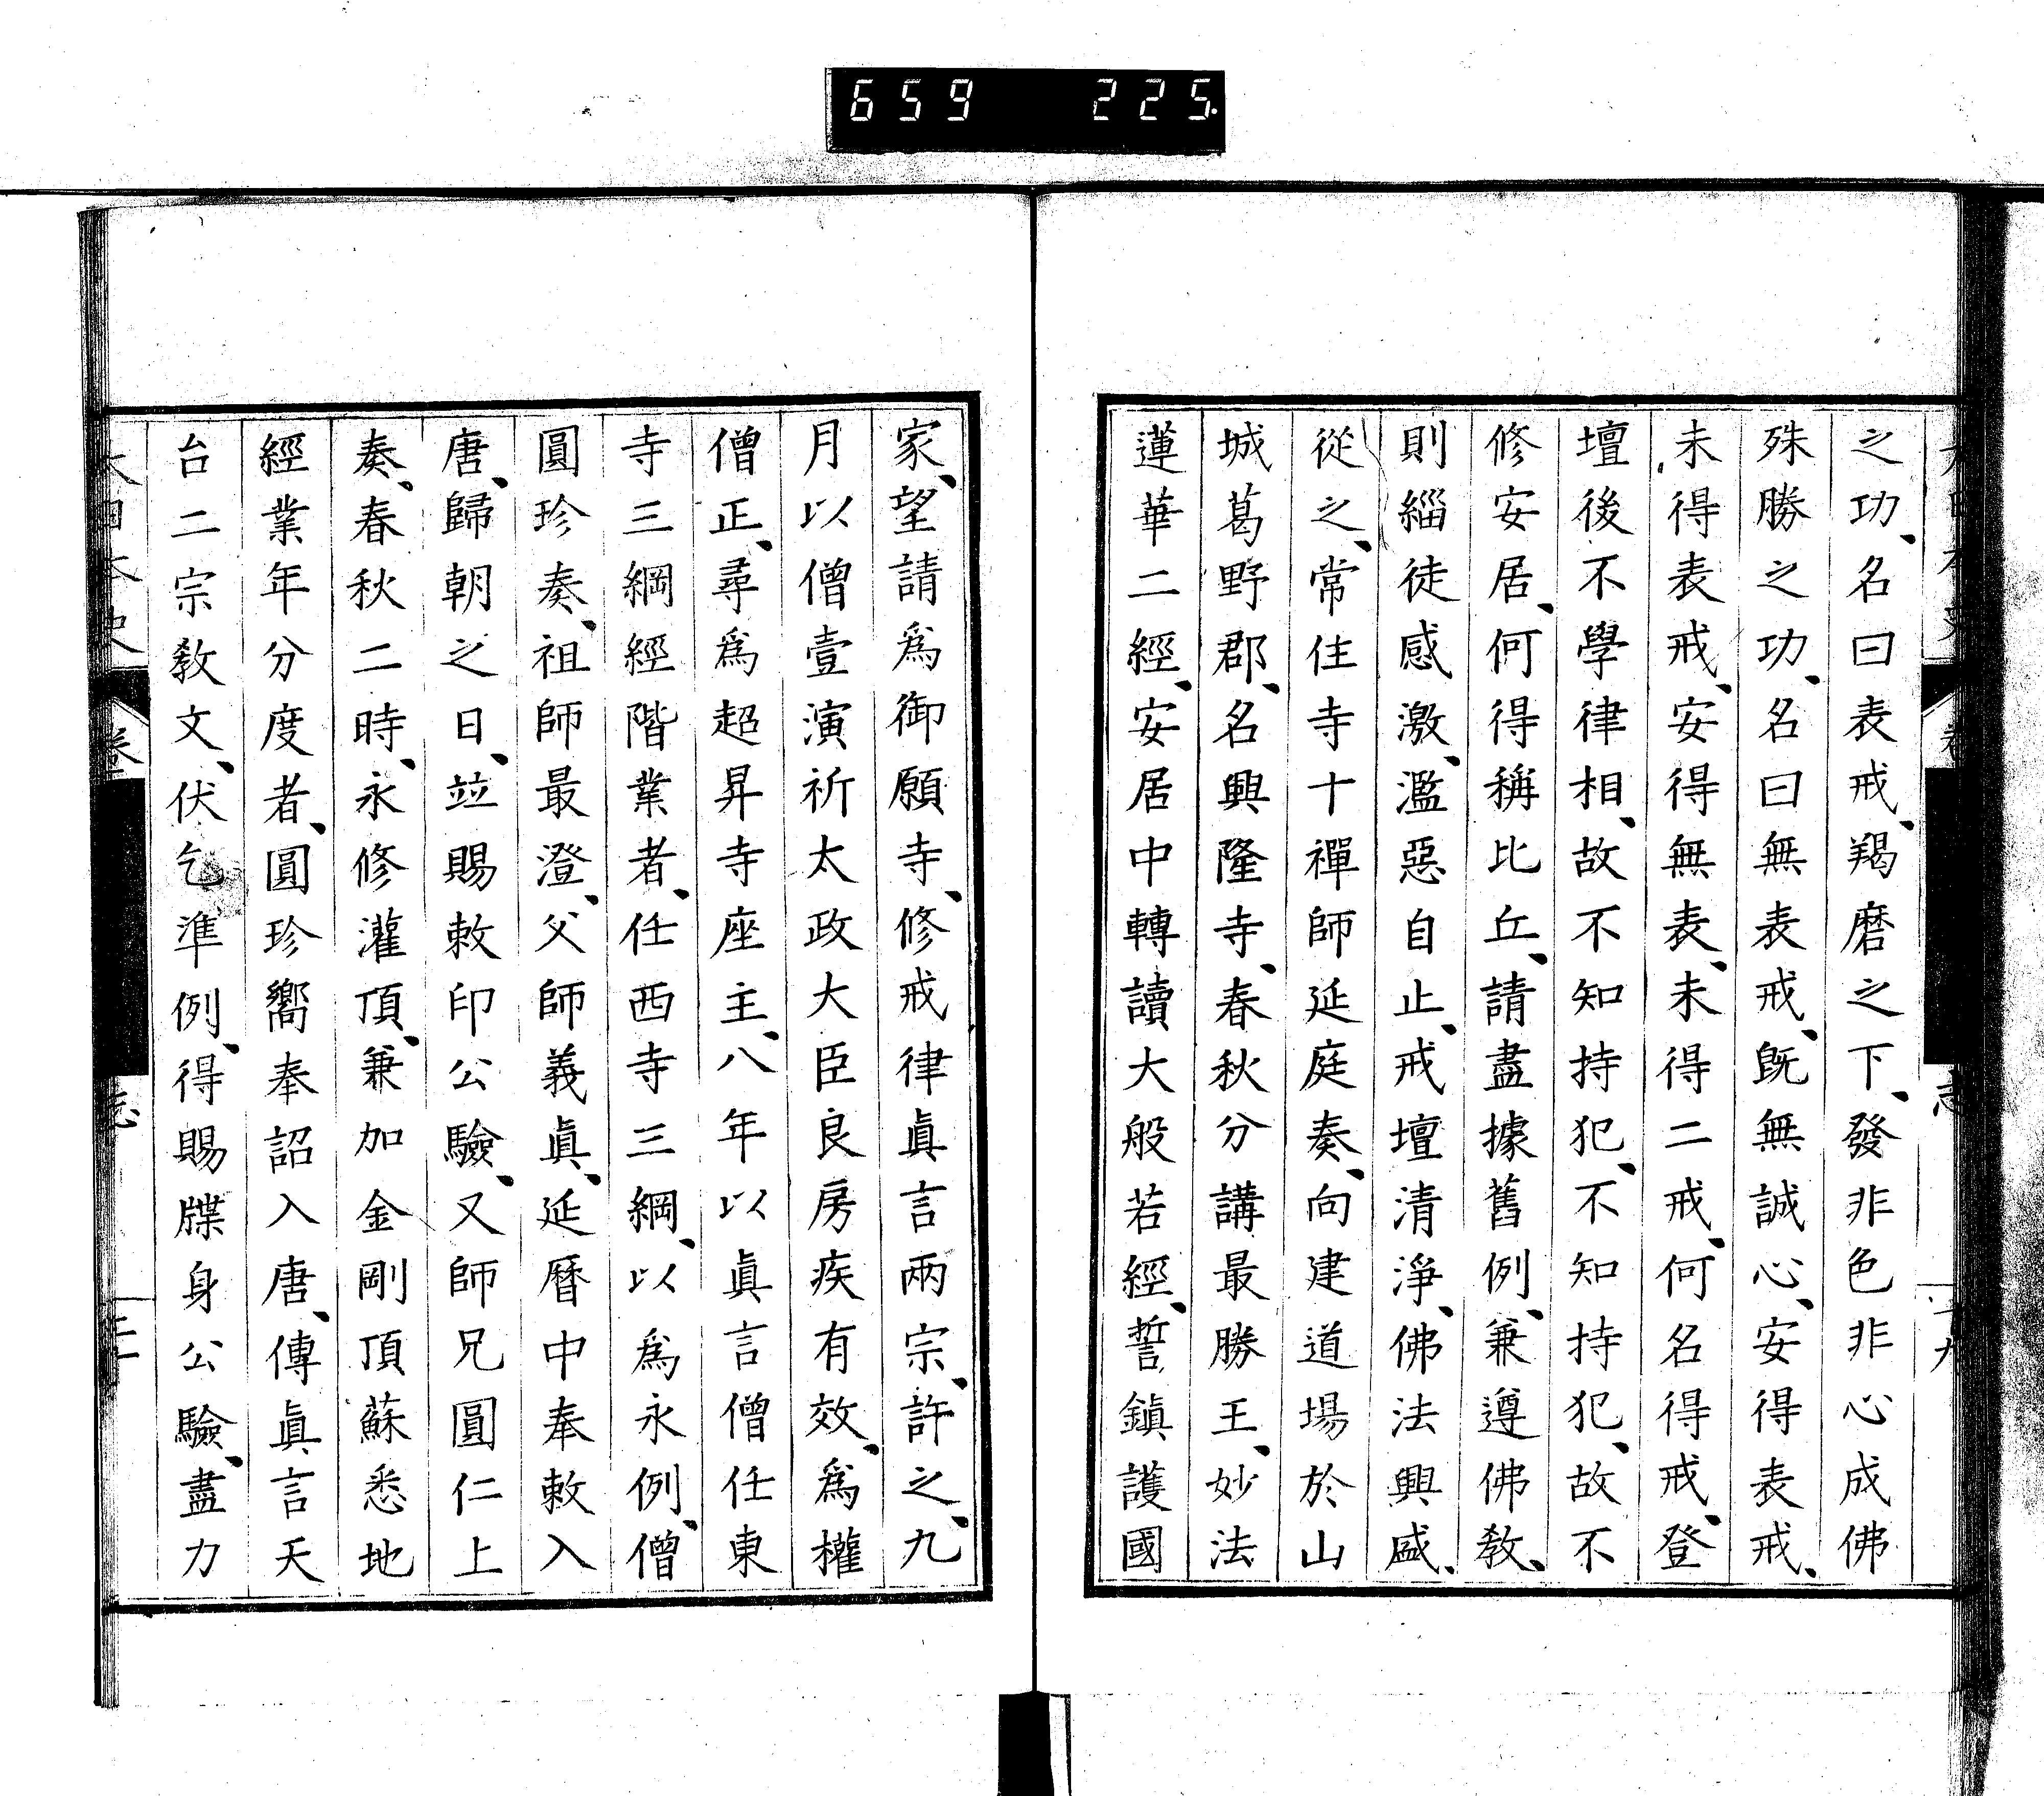 659 225
之功、名曰表戒、羯磨之下、發非色非心成佛
殊勝之功、名曰無表戒、既無誠心、安得表戒、
未得表戒、安得無表、未得二戒、何名得戒、登
壇後不學律相、故不知持犯、不知持犯、故不
修安居、何得稱比丘、請盡據舊例、兼遵佛教、
則緇徒感激、濫惡自止、戒壇清淨、佛法興盛、
從之、常住寺十禪師延庭奏、向建道場於山
城葛野郡、名興隆寺、春秋分講最勝王、妙法
蓮華二經、安居中轉讀大般若經、誓鎮護國
家、望請爲御願寺、修戒律眞言兩宗、許之、九
月以僧壹演祈太政大臣良房疾有效、爲權
僧正、尋爲超昇寺座主、八年以眞言僧任東
寺三綱經階業者、任西寺三綱、以爲永例、僧
圓珍奏、祖師最澄、父師義眞、延曆中奉敕入
唐、歸朝之日、竝賜敕印公驗、又師兄圓仁上
奏、春秋二時、永修灌頂、兼加金剛頂蘇悉地
經業年分度者、圓珍嚮奉詔入唐、傳眞言天
台二宗敎文、伏乞準例、得賜牒身公驗、盡力